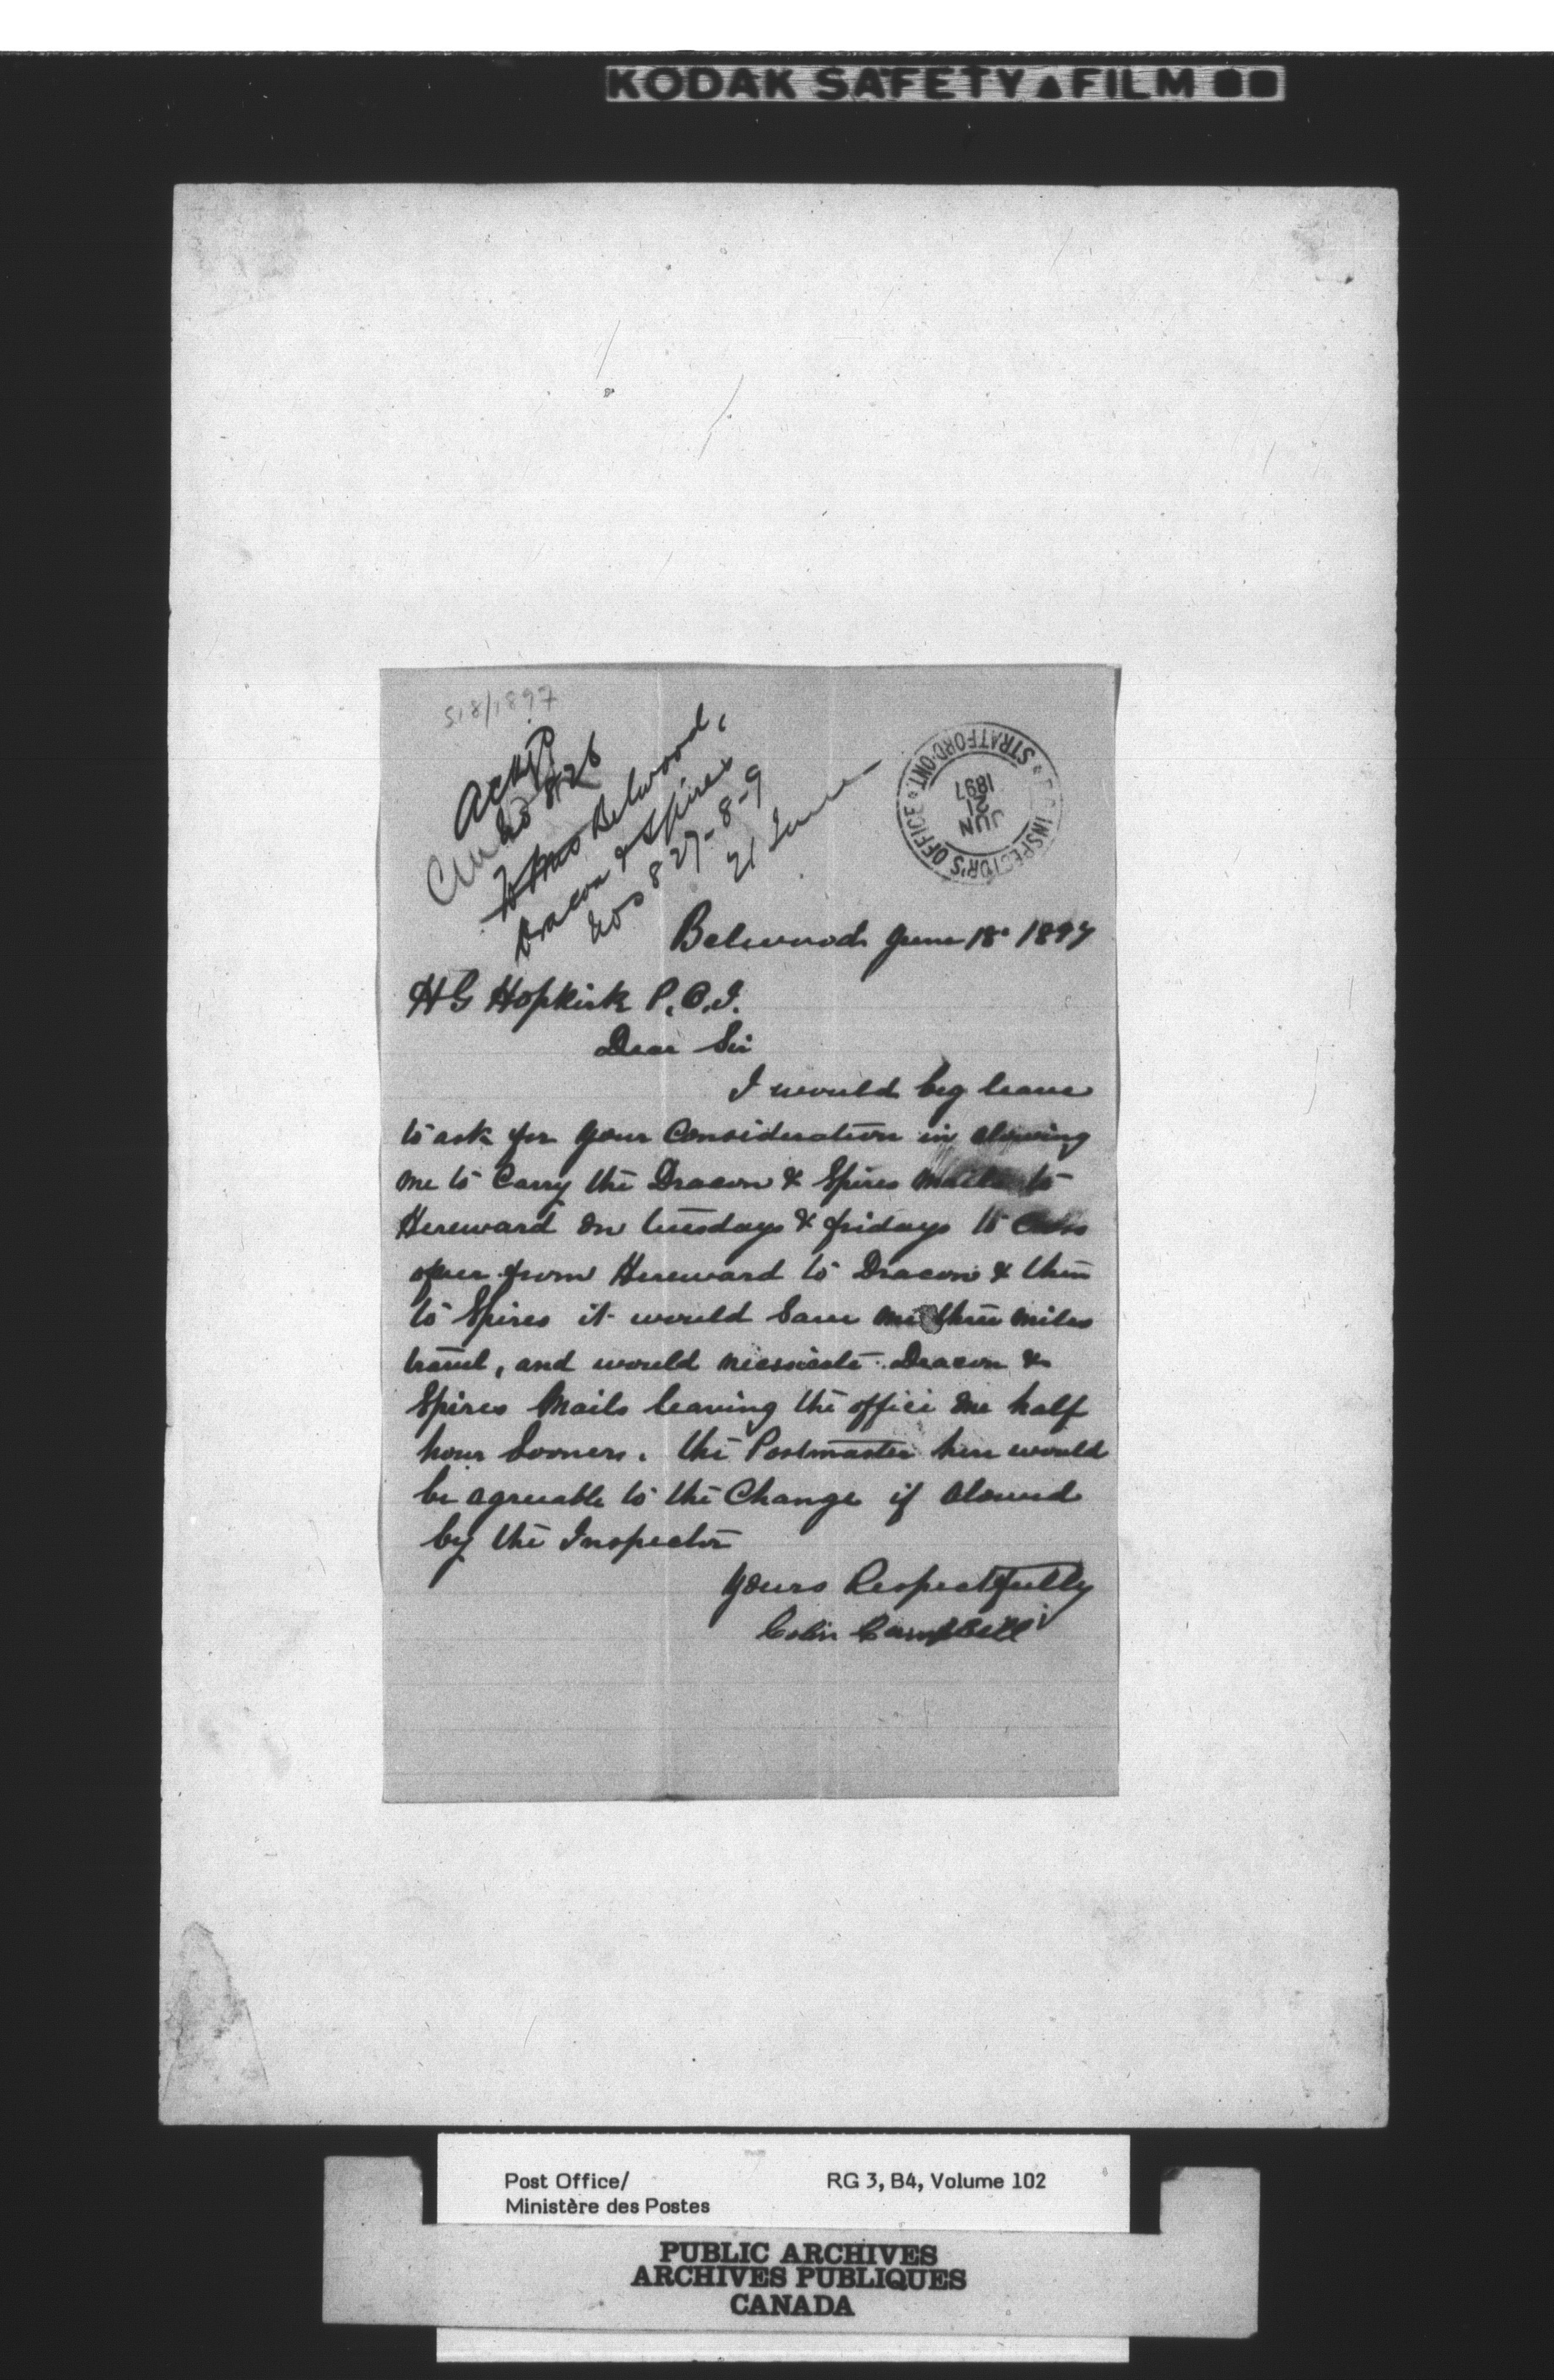 KODAK SAFETY FILM
518/1897
Ackgd
No 826
To PMs Belwood,
Dracon & Spires
Nos 827-8-9
21 June
P.O. INSPECTOR'S OFFICE
STRATFORD-ONT.
JUN
21
1897
Belwood June 18 1897
H G Hopkirk P.O.I.
Dear Sir
I would beg leave
to ask for your Consideration in alowing
me to Carry the Dracon & Spires mails to
Hereward on tuesdays & fridays to Cross
over from Hereward to Dracon & then
to Spires it would Save me three miles
travel, and would necssicate Dracon &
Spires Mails leaving the office one half
hour Sooner. the Postmaster here would
be agreeable to the Change if alowed
by the Inspector
Yours Respectfully
Colin Campbell
Post Office/
Ministère des Postes
RG 3, B4, Volume 102
PUBLIC ARCHIVES
ARCHIVES PUBLIQUES
CANADA